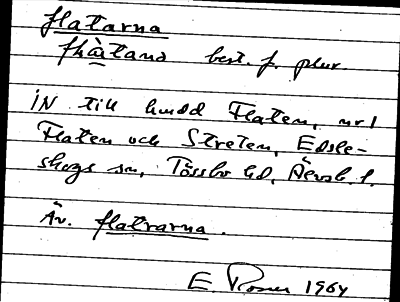 flatarna
flàtana best. f. plur
IN till hudd Flaten, nr 1
Flaten och Streten, Edsle-
skogs sn, Tössbo hd, Älvsb. l.
Äv. flatrarna.
E. Rosen 1964